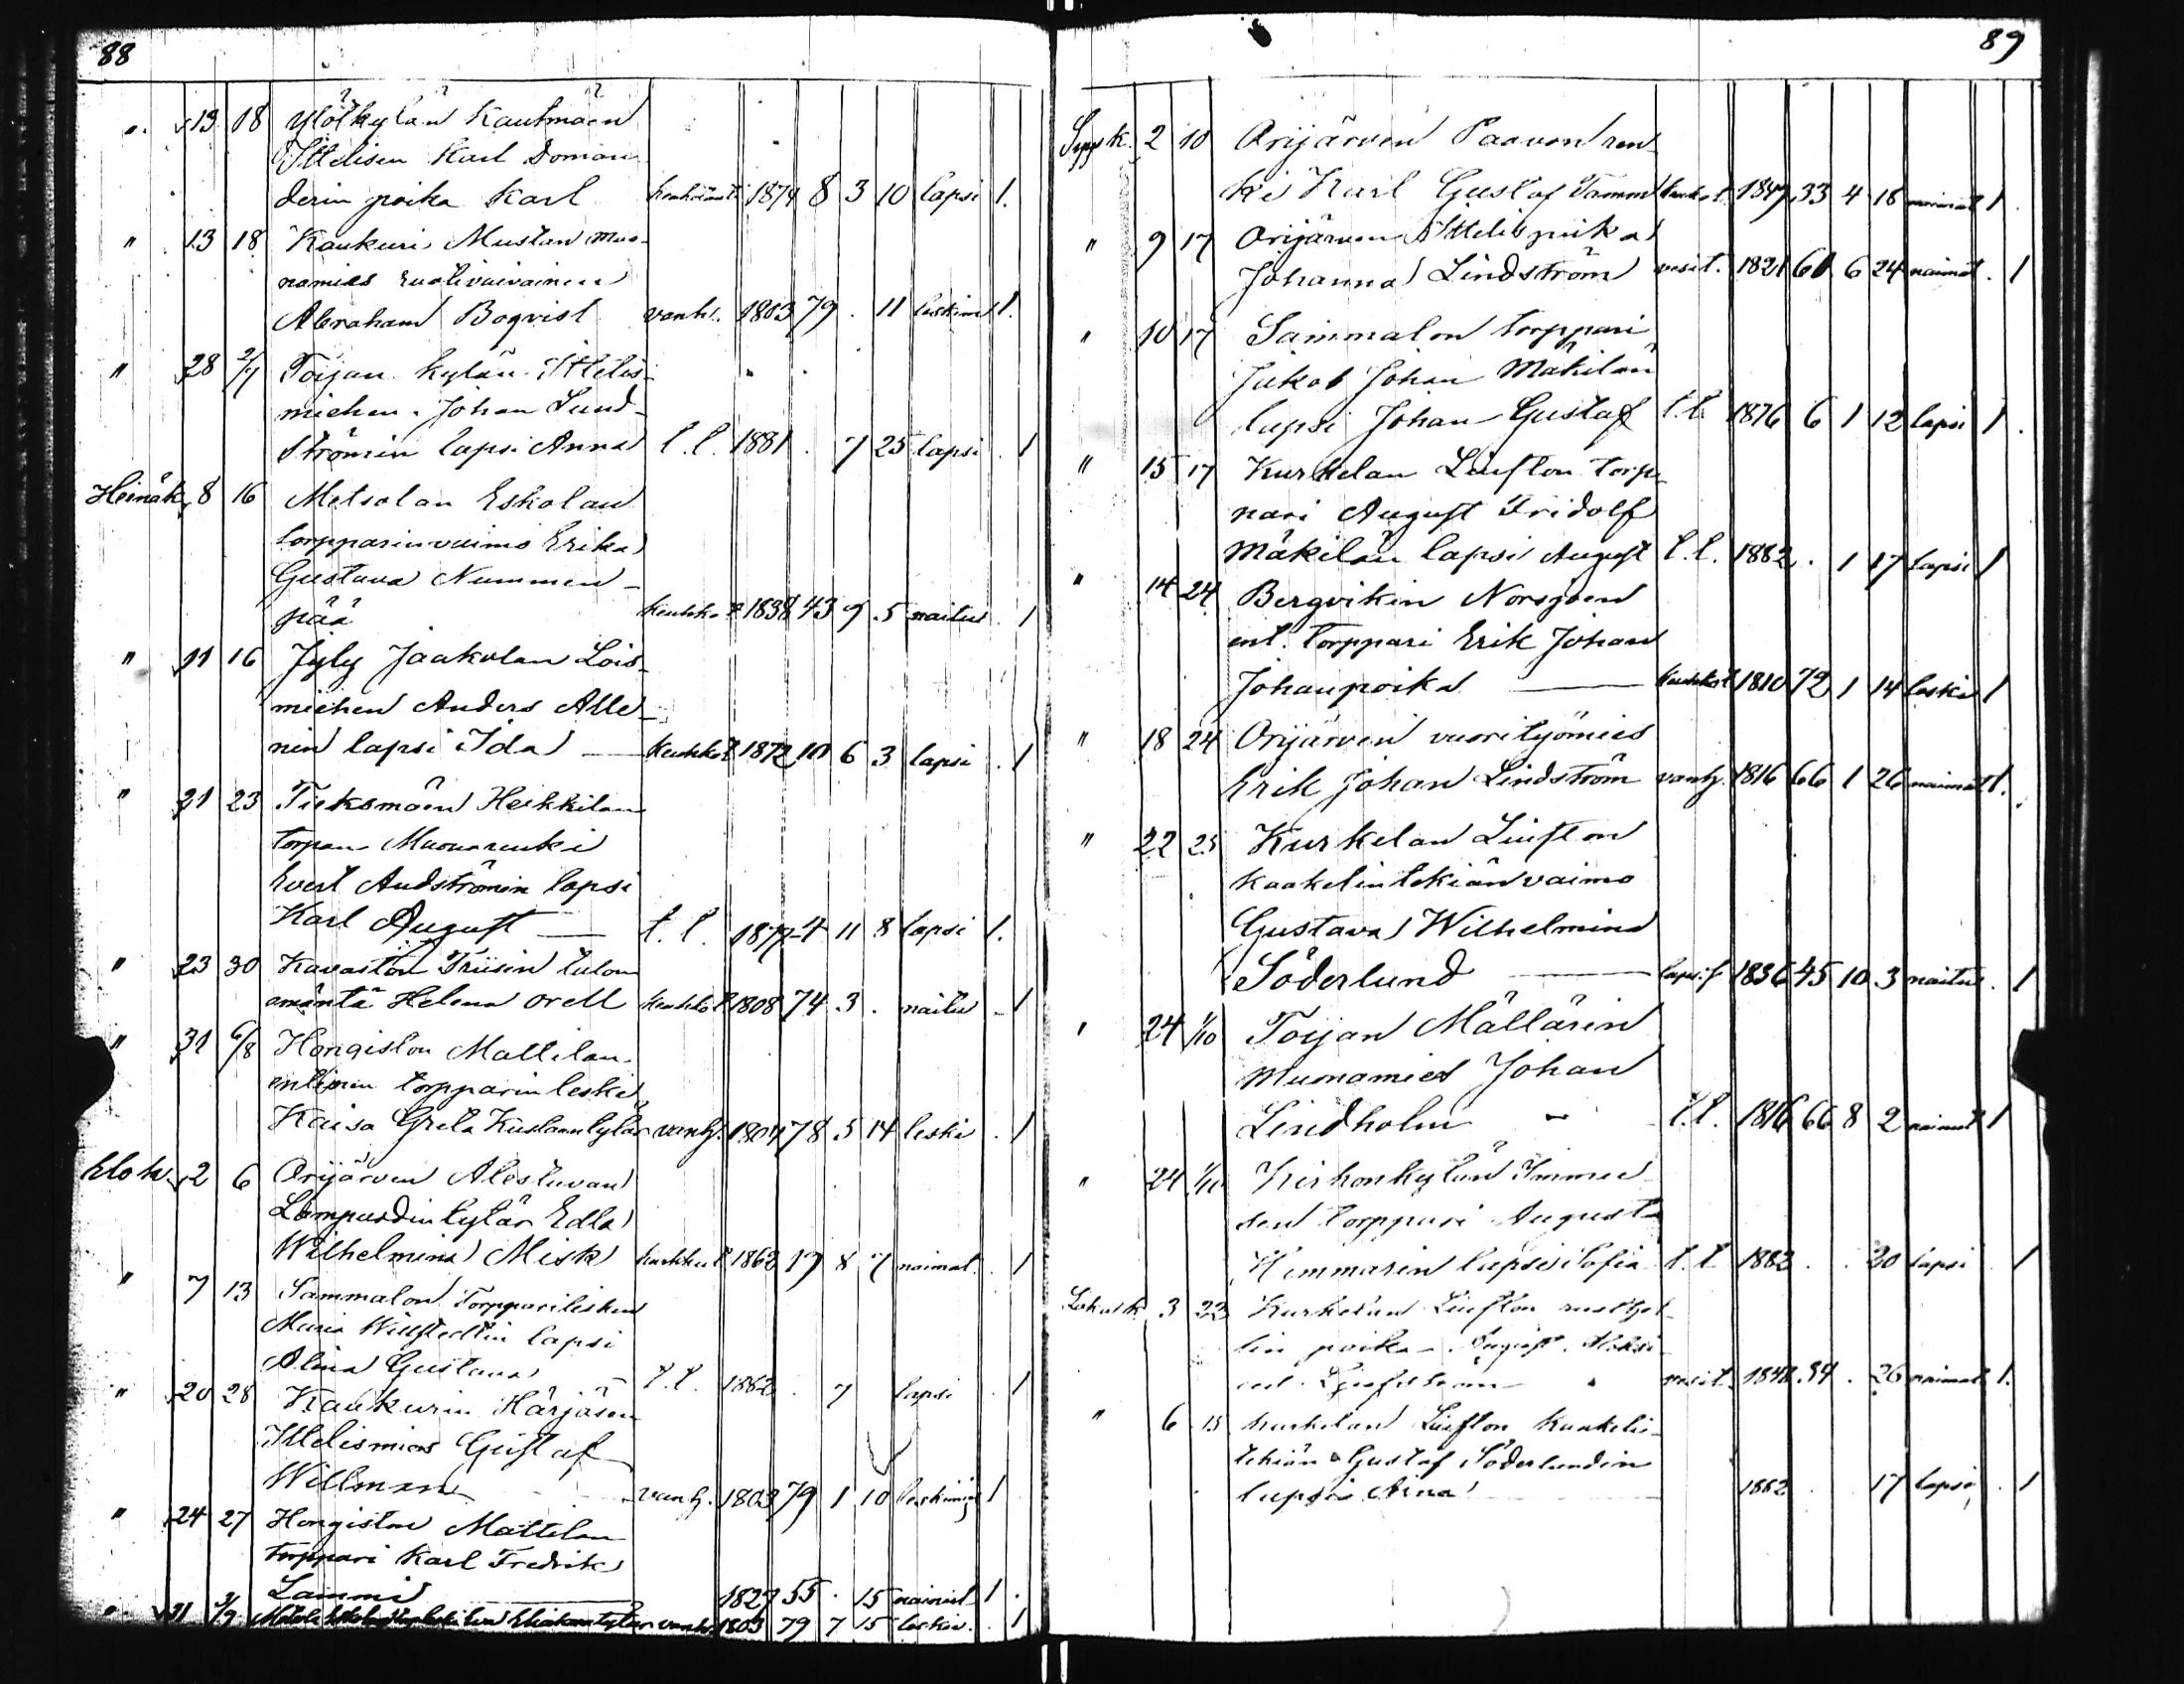 88
" 13 18 Ylölkylän Kautmäen
Ittelisen Karl Doman
derin poika Karl 1874 8 3 10 lapsi 1.
" 13 18 Kaukuri Mustan muo-
namies ruotivaivainen
Abraham Boqvist vanh. 1803 79 . 11 leskim. 1.
" 28 2/7 Toijan kylän Ittelis-
miehen Johan Sund-
strömin lapsi Anna t.t. 1881 . 7 25 lapsi . 1
Heinäk. 8 16 Metsolan Eskolan
torpparinvaimo Erika
Gustava Nummen-
pää keuhkot. 1838 43 9 5 naitu . 1
" 11 16 Jyly Jaakolan Lois-
miehen Anders Alle-
nin lapsi Ida — keuhkot. 1872 10 6 3 lapsi . 1
" 21 23 Tieksmäen Heikkilan
torpan Muonarenki
Evert Andströmin lapsi
Karl August — t.t. 1877 4 11 8 lapsi 1.
" 23 30 Kavaston Triisin
emäntä Helena Orell keuhkot. 1808 74 3 . naitu . 1
" 31 6/8 Hongiston Mattilan
entinen torpparin leski
Kaisa Greta tytär vanh. 1804 78 5 14 leski . 1
Elok. 2 6 Orijärven Alestuvan
tytär Edla
Wilhelmina Misk keuhkot. 1863 19 8 7 naimat. . 1
" 7 13 Sammalon Torpparilesken
Maria Willstedtin lapsi
Alina Gustava t.t. 1882 . 7 lapsi . 1
" 20 28 Kaukurin Härjäsen
Ittelismies Gustaf
Willman vanh. 1803 79 1 10 leskimies 1
" 24 27 Hongiston Mattilan
torppari Karl Fredrik
Lammi 1827 55 . 15 nainut 1 .
" 31 3/9 tytär vanh. 1803 79 7 15 leski . 1
89
Syysk. 2 10 Orijärven Paavon ren-
ki Karl Gustaf Tamm keuhkot. 1849 33 4 18 naimat. 1 .
" 9 17 Orijärven Ittelis piika
Johanna Lindström vesit. 1821 60 6 24 naimat. . 1
" 10 17 Sammalon torppari
Jakob Johan Mäkilän
lapsi Johan Gustaf t.t. 1876 6 1 12 lapsi 1 .
" 15 17 Kurkelan Liufton torp-
pari August Fridolf
Mäkilän lapsi August t.t. 1882 . 1 17 lapsi 1
" 14 24 Bergvikin Norsjoen
ent. torppari Erik Johan
Johanpoika — keuhkot. 1810 72 1 14 leski 1
" 18 24 Orijärven vuorityömies
Erik Johan Lindström vanh. 1816 66 1 26 naimat. 1.
" 22 25 Kurkelan Liufton
kaakelintekiän vaimo
Gustava Wilhelmina
Söderlund — lapsi 1836 45 10 3 naitu . 1
" 24 1/10 Toijan Mällärin
muonamies Johan
Lindholm - t.t. 1816 66 8 2 nainut 1
" 24 1/10 Kirkonkylän
sen torppari August
Himmarin lapsi Sofia t.t. 1882 . . 20 lapsi 1
Lokak. 3 22 Kurkelan Liufton
lin poika August
vesit. 1848 34 . 26 naimat. 1.
" 6 15 Kurkelan Liufton Kaakelin-
tekiän Gustaf Söderlundin
lapsi Aina — 1882 . . 17 lapsi . 1